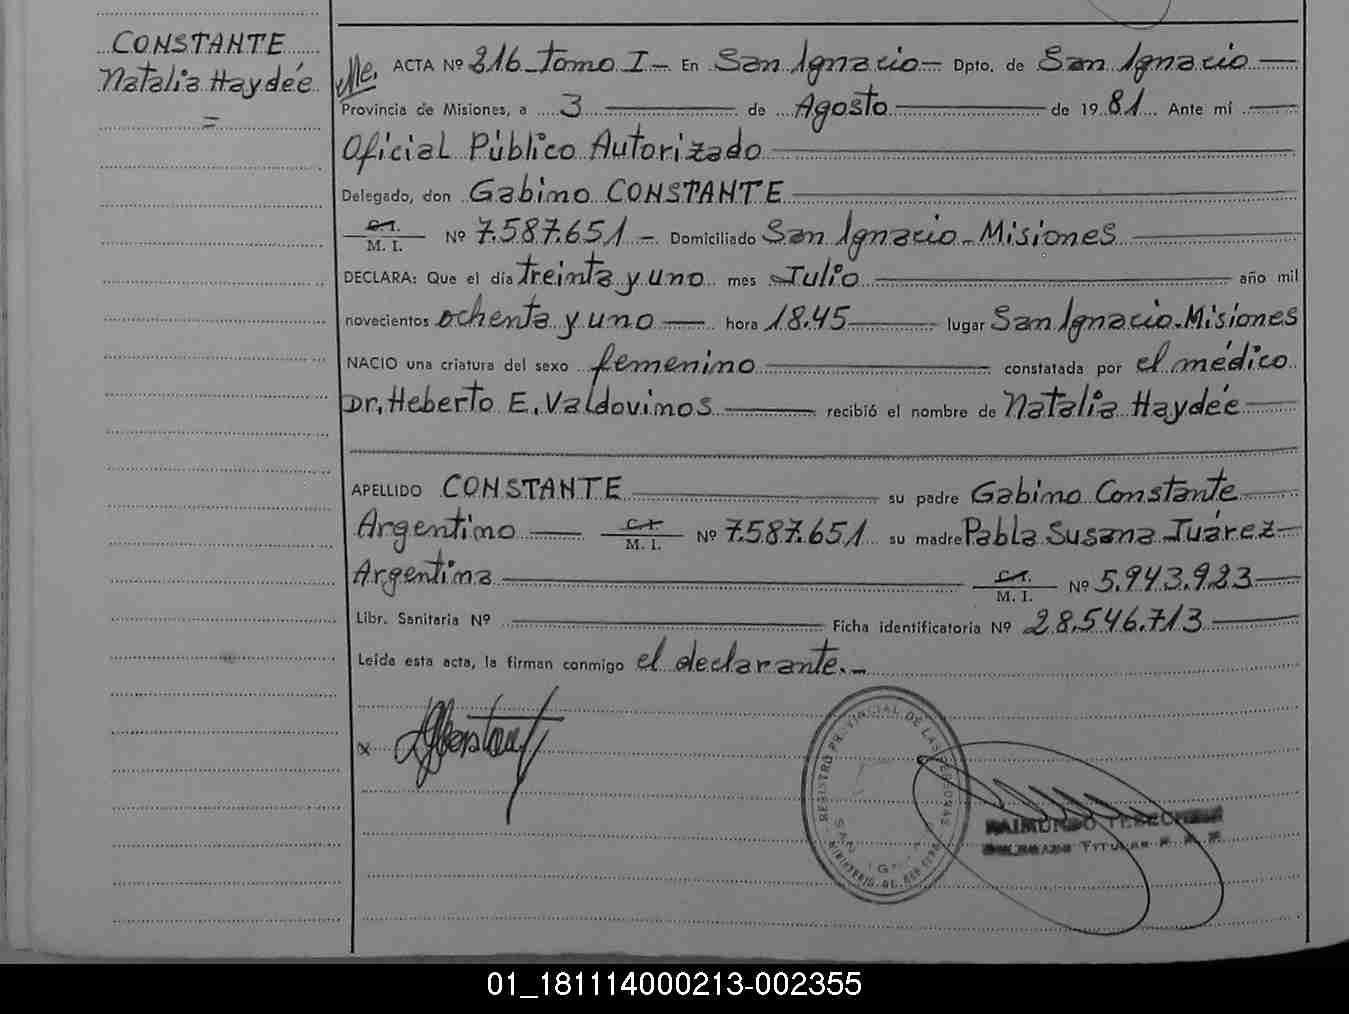 CONSTANTE
Natalia Haydée
=
ACTA Nº 216 Tomo I - En San Ignacio - Dpto. de San Ignacio
Provincia de Misiones, a 3 de Agosto de 1981 Ante mí
Oficial Público Autorizado
Delegado, don Gabino CONSTANTE
C.I.
M. I. Nº 7.587.651 - Domiciliado San Ignacio - Misiones
DECLARA: Que el día treinta y uno mes Julio año mil
novecientos ochenta y uno hora 18.45 lugar San Ignacio - Misiones
NACIO una criatura del sexo femenino constatada por el médico
Dr. Heberto E. Valdovinos recibió el nombre de Natalia Haydée
APELLIDO CONSTANTE su padre Gabino Constante
Argentino C.I. M. I. Nº 7.587.651 su madre Pabla Susana Juárez
Argentina C.I. M. I. Nº 5.943.923
Libr. Sanitaria Nº Ficha identificatoria Nº 28.546.713
Leída esta acta, la firman conmigo el declarante.-
x
REGISTRO PROVINCIAL DE LAS PERSONAS
SAN
MINISTERIO DE
RAIMUNDO
TITULAR
01_181114000213-002355